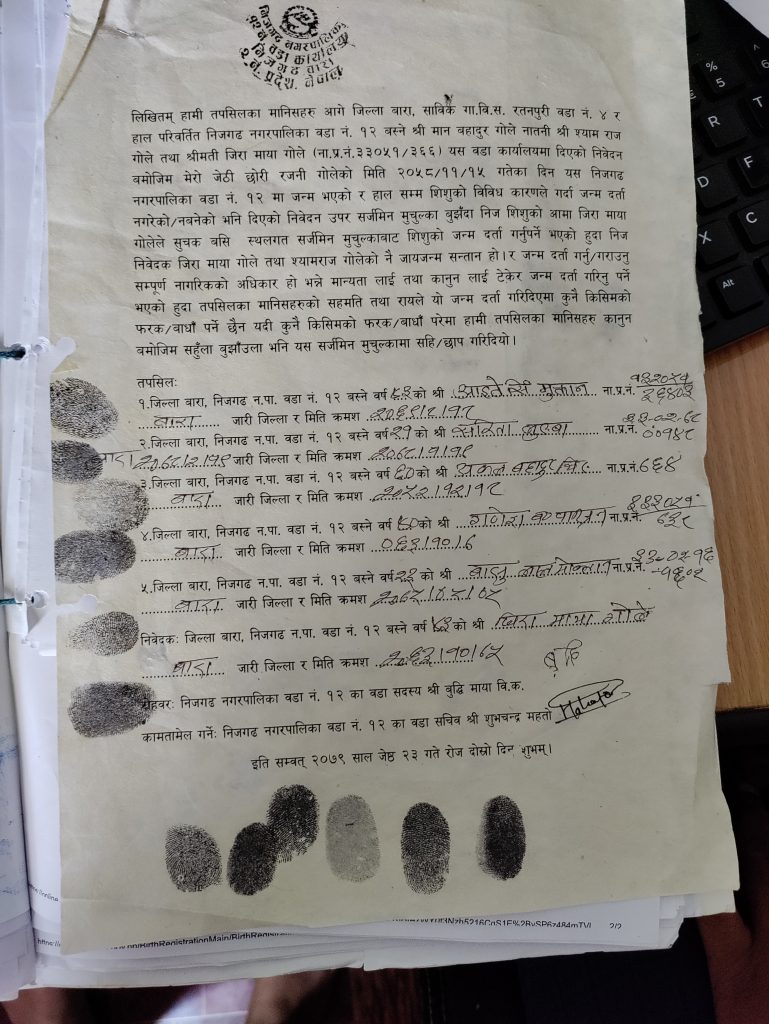 निजगढ नगरपालिका
१२ नं. वडा कार्यालय
निजगढ बारा
२ नं. प्रदेश, नेपाल
लिखितम् हामी तपसिलका मानिसहरु आगे जिल्ला बारा, साविक गा.वि.स. रतनपुरी वडा नं. ४ र
हाल परिवर्तित निजगढ नगरपालिका वडा नं. १२ बस्ने श्री मान बहादुर गोले नातनी श्री श्याम राज
गोले तथा श्रीमती जिरा माया गोले (ना.प्र.नं.३३०५१/३६६) यस वडा कार्यालयमा दिएको निवेदन
बमोजिम मेरो जेठी छोरी रजनी गोलेको मिति २०५८/११/१५ गतेका दिन यस निजगढ
नगरपालिका वडा नं. १२ मा जन्म भएको र हाल सम्म शिशुको विविध कारणले गर्दा जन्म दर्ता
नगरेको/नबनेको भनि दिएको निवेदन उपर सर्जमिन मुचुल्का बुझँदा निज शिशुको आमा जिरा माया
गोलेले सुचक बसि स्थलगत सर्जमिन मुचुल्काबाट शिशुको जन्म दर्ता गर्नुपर्ने भएको हुदा निज
निवेदक जिरा माया गोले तथा श्यामराज गोलेको नै जायजन्म सन्तान हो। र जन्म दर्ता गर्नु/गराउनु
सम्पूर्ण नागरिकको अधिकार हो भन्ने मान्यता लाई तथा कानुन लाई टेकेर जन्म दर्ता गरिनु पर्ने
भएको हुदा तपसिलका मानिसहरुको सहमति तथा रायले यो जन्म दर्ता गरिदिएमा कुनै किसिमको
फरक/बाधाँ पर्ने छैन यदी कुनै किसिमको फरक/बाधाँ परेमा हामी तपसिलका मानिसहरु कानुन
बमोजिम सहुँला बुझाँउला भनि यस सर्जमिन मुचुल्कामा सहि/छाप गरिदियो।
तपसिलः
१.जिल्ला बारा, निजगढ न.पा. वडा नं. १२ बस्ने वर्ष को श्री मुक्तान ना.प्र.नं.
बारा जारी जिल्ला र मिति क्रमश
२.जिल्ला बारा, निजगढ न.पा. वडा नं. १२ बस्ने वर्ष २१ को श्री ना.प्र.नं.
बारा जारी जिल्ला र मिति क्रमश
३.जिल्ला बारा, निजगढ न.पा. वडा नं. १२ बस्ने वर्ष ६० को श्री बहादुर ना.प्र.नं.
बारा जारी जिल्ला र मिति क्रमश २०५२।१२।१८
४.जिल्ला बारा, निजगढ न.पा. वडा नं. १२ बस्ने वर्ष को श्री गणेश ना.प्र.नं.
बारा जारी जिल्ला र मिति क्रमश
५.जिल्ला बारा, निजगढ न.पा. वडा नं. १२ बस्ने वर्ष २३ को श्री ना.प्र.नं.
बारा जारी जिल्ला र मिति क्रमश
निवेदकः जिल्ला बारा, निजगढ न.पा. वडा नं. १२ बस्ने वर्ष को श्री जिरा माया गोले
बारा जारी जिल्ला र मिति क्रमश
रोहवरः निजगढ नगरपालिका वडा नं. १२ का वडा सदस्य श्री बुद्धि माया वि.क.
कामतामेल गर्नेः निजगढ नगरपालिका वडा नं. १२ का वडा सचिव श्री शुभचन्द्र महतो
इति सम्वत् २०७९ साल जेष्ठ २३ गते रोज दोस्रो दिन शुभम्।
2/2